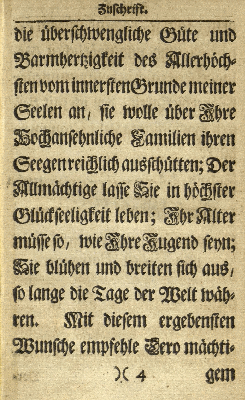 Zuschrift.
die überschwengliche Güte und
Barmhertzigkeit des Allerhöch-
sten vom innersten Grunde meiner
Seelen an, sie wolle über Ihre
Hochansehnliche Familien ihren
Seegen reichlich ausschütten; Der
Allmächtige lasse Sie in höchster
Glückseeligkeit leben; Ihr Alter
müsse so, wie Ihre Jugend seyn;
Sie blühen und breiten sich aus,
so lange die Tage der Welt wäh-
ren. Mit diesem ergebensten
Wunsche empfehle Dero mächti-
)( 4 gem